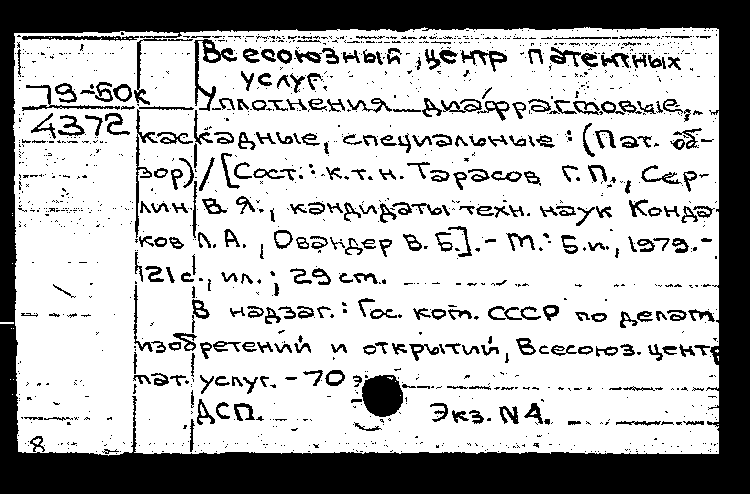 Всесоюзный центр патентных
услуг.
79-50к
Уплотнения диафрагмовые,
4372
каскадные, специальные : (Пат. об-
зор) / [Сост.: к.т.н. Тарасов Г.П., Сер-
лин В.Я., кандидаты техн. наук Конда-
ков Л.А., Овандер В.Б.]. - М.: Б.и., 1979. -
121 с., ил.; 29 см.
В надзаг.: Гос. ком. СССР по делам
изобретений и открытий, Всесоюз. центр
пат. услуг. - 70 э
ДСП. Экз. N4.
8